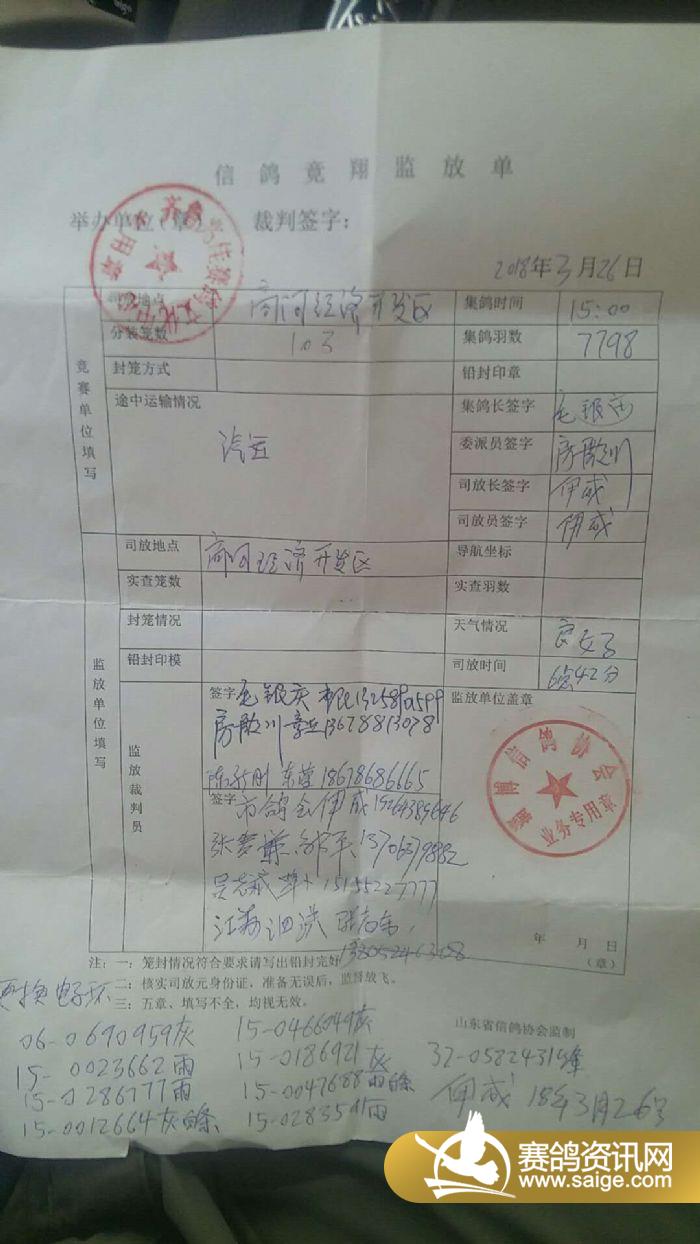 信鸽竞翔监放单
举办单位(章) 裁判签字:
2018年3月26日
司放地点 商河经济开发区 集鸽时间 15:00
分装笼数 103 集鸽羽数 7798
封笼方式 铅封印章
竞赛单位填写
途中运输情况 汽运
集鸽长签字
委派员签字
司放长签字 伊威
司放员签字 伊威
司放地点 商河经济开发区 导航坐标
实查笼数 实查羽数
封笼情况 天气情况 良好
铅封印模 司放时间 6点42分
监放单位填写
监放裁判员
签字
监放单位盖章
东莹 18678686665
签字 市鸽会伊威
15155227777
江苏泗洪
淄博信鸽协会
业务专用章
年 月 日
(章)
注:一:笼封情况符合要求请写出铅封完好
二:核实司放元身份证,准备无误后,监督放飞。
三:五章、填写不全,均视无效。
山东省信鸽协会监制
更换电子环
06-0690959灰 15-0466049灰
15-0023662雨 15-0186921灰 32-0582431绛
15-0286777雨 15-0047688雨白条
15-0012664灰白条 15-0283541雨
伊威 18年3月26号
赛鸽资讯网
www.saige.com